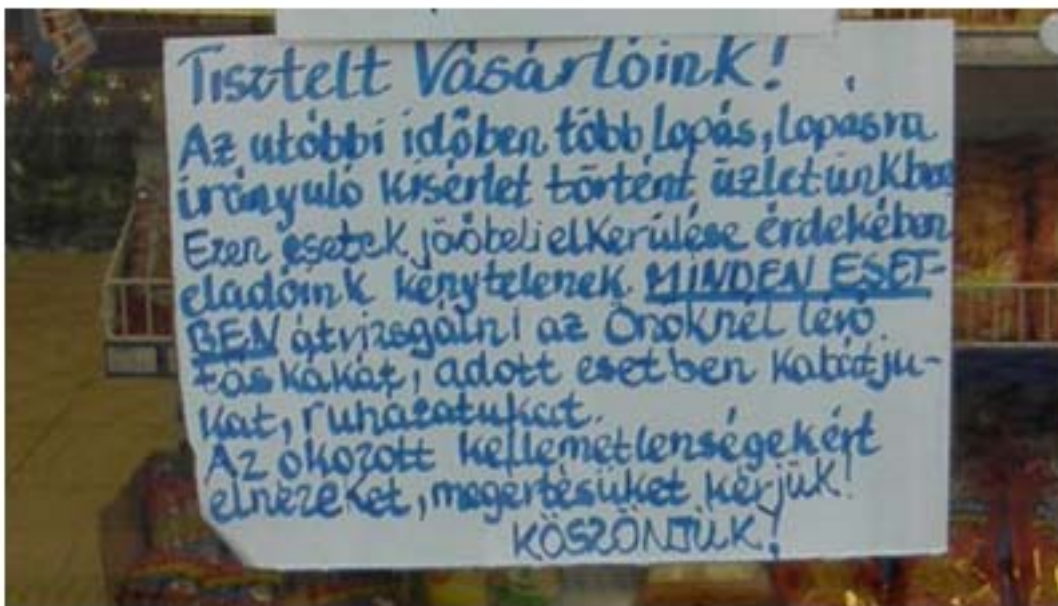 Tisztelt Vásárlóink!
Az utóbbi időben több lopás, lopásra
irányuló kisérlet történt üzletünkben
Ezen esetek jövőbeli elkerülése érdekében
eladóink kénytelenek MINDEN ESET-
BEN átvizsgálni az Önöknél lévő
táskákat, adott esetben kabátju-
kat, ruházatukat.
Az okozott kellemetlenségekért
elnézéket, megértésüket kérjük!
KÖSZÖNJÜK!